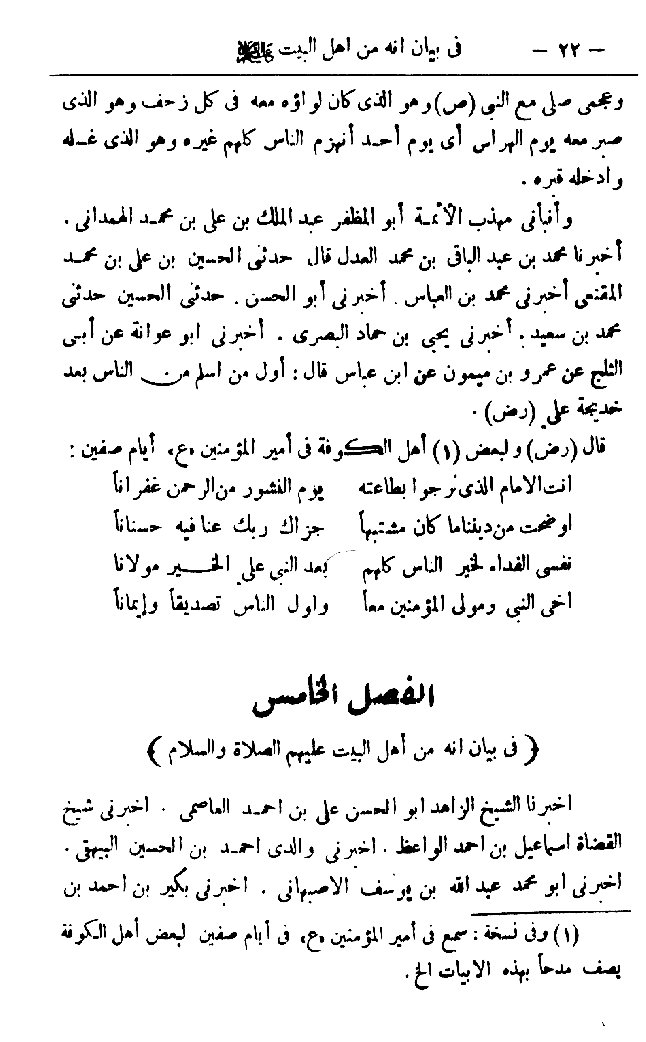 — ٢٢ — في بيان انه من اهل البيت
وعجمى صلى مع النبي (ص) وهو الذى كان لواؤه معه فى كل زحف وهو الذى
صبر معه يوم الهراس أى يوم أحد أنهزم الناس كلهم غيره وهو الذى غسله
وادخله قبره .
وأنبأنى مهذب الأئمة أبو المظفر عبد الملك بن على بن محمد الهمدانى .
أخبرنا محمد بن عبد الباقى بن محمد العدل قال حدثنى الحسين بن على بن محمد
المقنعى أخبرنى محمد بن العباس . أخبرنى أبو الحسن . حدثنى الحسين حدثنى
محمد بن سعيد . أخبرنى يحيى بن حماد البصرى . أخبرنى ابو عوانة عن أبى
الثلج عن عمرو بن ميمون عن ابن عباس قال : أول من اسلم من الناس بعد
خديجة على (رض) .
قال (رض) ولبعض (١) أهل الكوفة فى أمير المؤمنين «ع» أيام صفين :
انت الامام الذى نرجوا بطاعته يوم النشور من الرحمن غفرانا
اوضحت من ديننا ما كان مشتبهاً جزاك ربك عنا فيه حسناناً
نفسى الفداء لخير الناس كلهم بعد النبي على الخير مولانا
اخى النبى ومولى المؤمنين معاً واول الناس تصديقاً وإيماناً
الفصل الخامس
( فى بيان انه من أهل البيت عليهم الصلاة والسلام )
اخبرنا الشيخ الزاهد ابو الحسن على بن احمد العاصمى . اخبرنى شيخ
القضاة اسماعيل بن احمد الواعظ . اخبرنى والدى احمد بن الحسين البيهقى .
اخبرنى أبو محمد عبد الله بن يوسف الاصبهانى . اخبرنى بكير بن احمد بن
(١) وفى نسخة : سمع فى أمير المؤمنين «ع» فى أيام صفين لبعض أهل الكوفة
يصف مدحاً بهذه الابيات الخ .